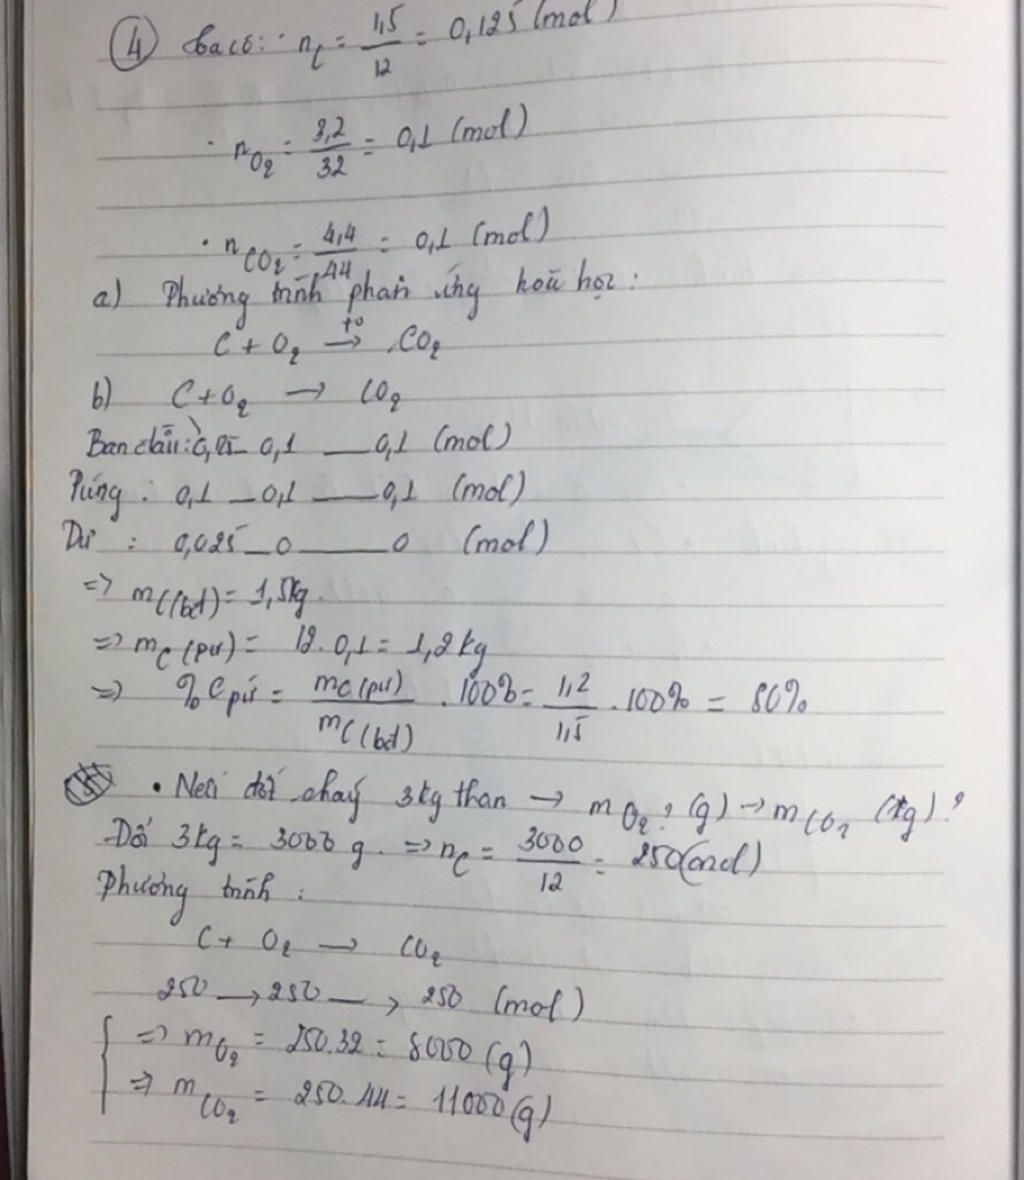 ④ Ta có: · nC = 1,5/12 = 0,125 (mol)
· nO2 = 3,2/32 = 0,1 (mol)
· nCO2 = 4,4/44 = 0,1 (mol)
a) Phương trình phản ứng hoá học:
C + O2 →(t°) CO2
b) C + O2 → CO2
Ban đầu: — 0,1 — 0,1 (mol)
Pứng : 0,1 — 0,1 — 0,1 (mol)
Dư : 0,025 — 0 — 0 (mol)
=> mC(bđ) = 1,5kg
=> mC(pư) = 12.0,1 = 1,2kg
=> %C pứ = mC(pư)/mC(bđ) .100% = 1,2/1,5 .100% = 80%
· Nếu đốt cháy 3kg than → mO2? (g) → mCO2 (kg)?
Đổi 3kg = 3000 g. => nC = 3000/12 = 250(mol)
Phương trình :
C + O2 → CO2
250 → 250 → 250 (mol)
{ => mO2 = 250.32 = 8000 (g)
=> mCO2 = 250.44 = 11000 (g)